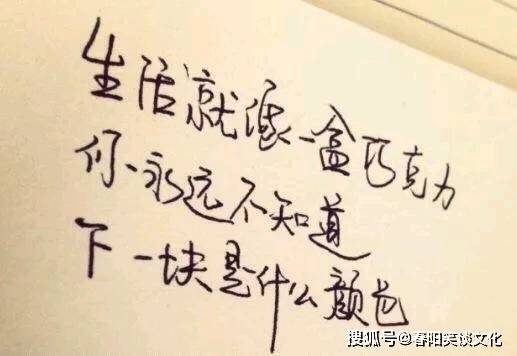 生活就像一盒巧克力
你永远不知道
下一块是什么颜色
搜狐号@春阳笑谈文化